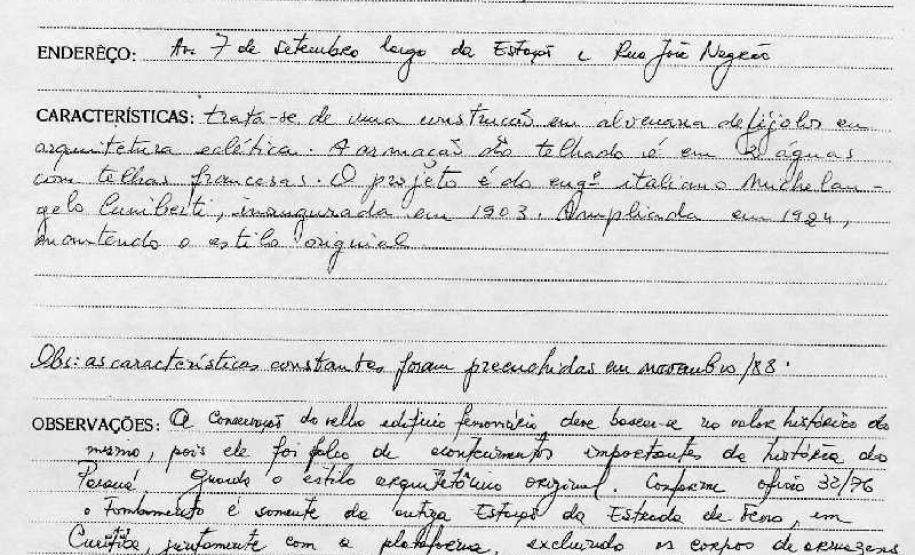 ENDERÊÇO: Av. 7 de Setembro largo da Estação e Rua João Negrão
CARACTERÍSTICAS: trata-se de uma construção em alvenaria de tijolos em
arquitetura eclética. A armação do telhado é em 2 águas
com telhas francesas. O projeto é do engº italiano Michelan-
gelo Cuniberti, inaugurada em 1903. Ampliada em 1924,
mantendo o estilo original.
Obs: as características constantes foram preenchidas em novembro/88.
OBSERVAÇÕES: A conservação do velho edifício ferroviário, deve basear-se no valor histórico do
mesmo, pois ele foi palco de acontecimentos importantes da história do
Paraná. Guarda o estilo arquitetônico original. Conforme ofício 32/76
o Tombamento é somente da antiga Estação da Estrada de Ferro, em
Curitiba, juntamente com a plataforma, excluindo os corpos de armazens